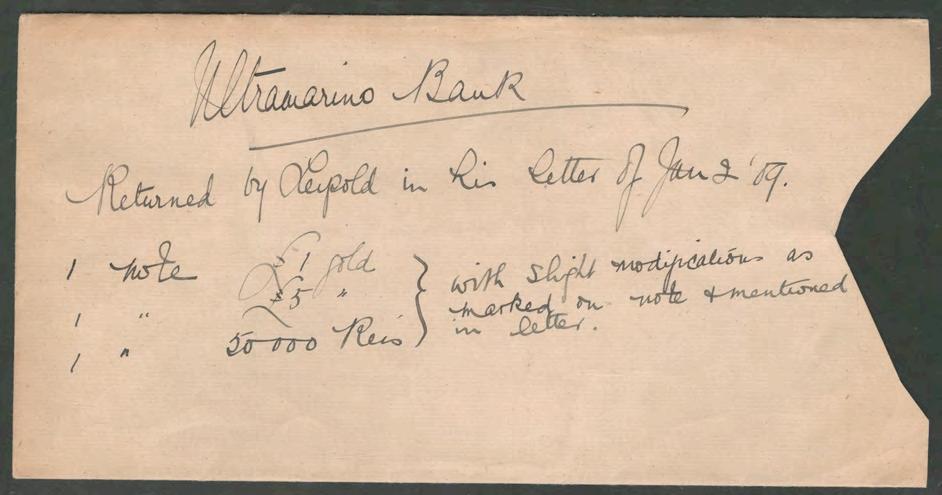 Ultramarino Bank
Returned by Leipold in his letter of Jan 2 '09.
1 note £1 gold
1 " £5 "
1 " 50 000 Reis
with slight modifications as
marked on note & mentioned
in letter.